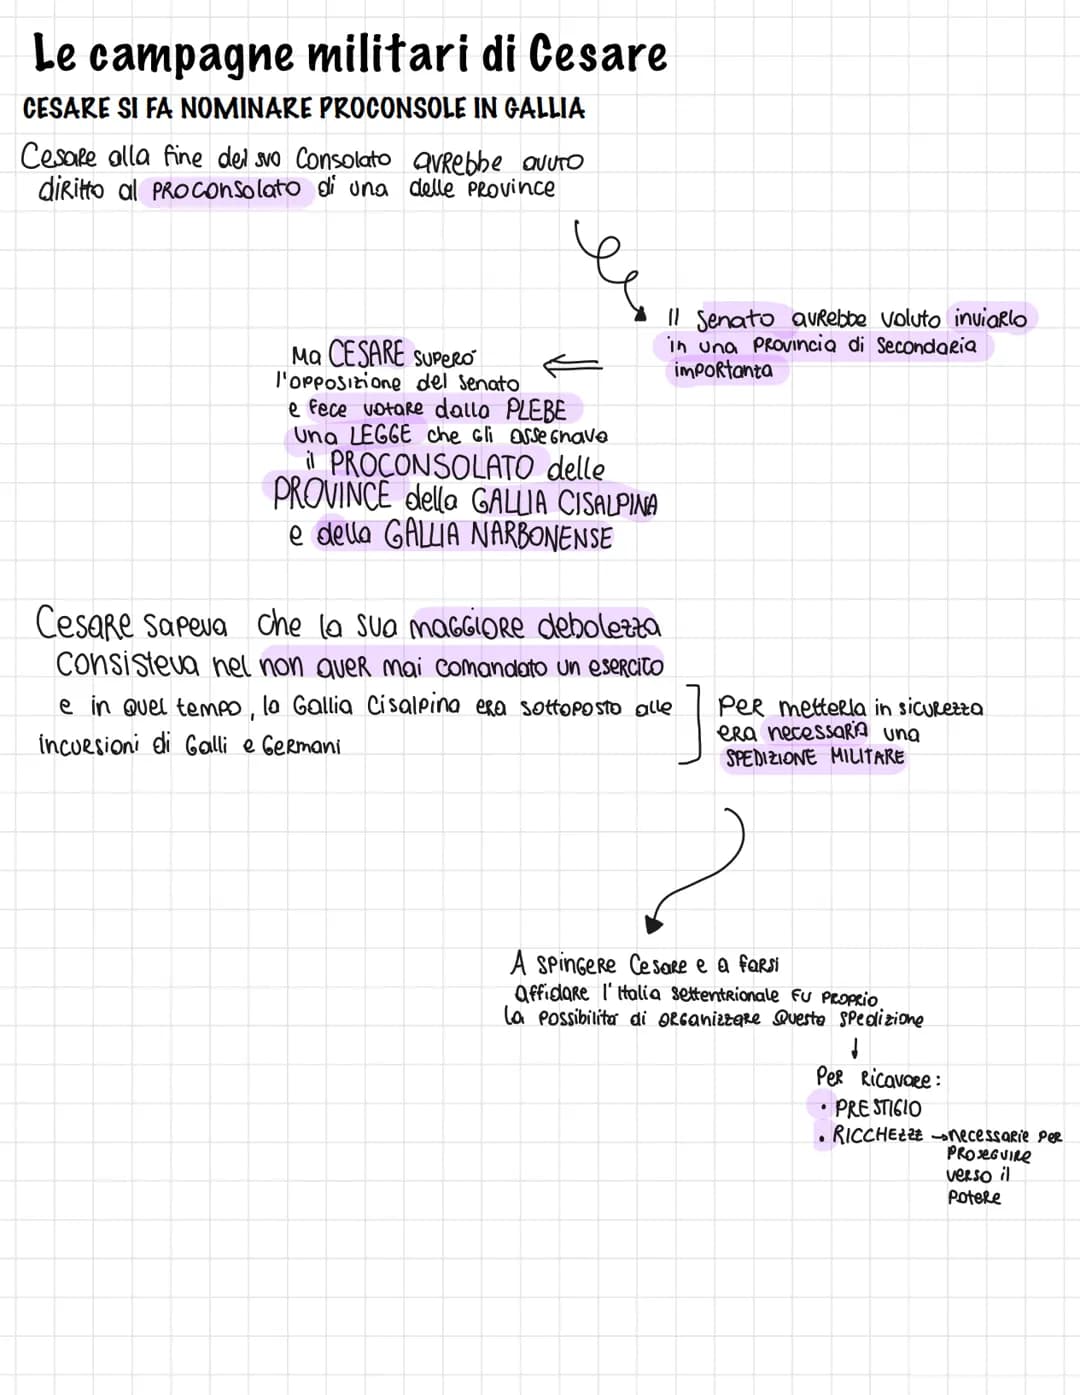 Le campagne militari di Cesare
CESARE SI FA NOMINARE PROCONSOLE IN GALLIA
Cesare alla fine del suo Consolato avrebbe avuto
diritto al PROConsolato di una delle Province
Il Senato avrebbe voluto inviarlo
in una Provincia di Secondaria
importanza
Ma CESARE superò
l'opposizione del Senato
e fece votare dalla PLEBE
una LEGGE che gli assegnava
il PROCONSOLATO delle
PROVINCE della GALLIA CISALPINA
e della GALLIA NARBONENSE
Cesare sapeva che la sua maggiore debolezza
consisteva nel non aver mai comandato un esercito
e in quel tempo, la Gallia Cisalpina era sottoposto alle
incursioni di Galli e Germani
Per metterla in sicurezza
era necessaria una
SPEDIZIONE MILITARE
A spingere Cesare e a farsi
affidare l'Italia settentrionale fu proprio
la possibilità di organizzare questa spedizione
Per Ricavare:
• PRESTIGIO
• RICCHEZZE → necessarie per
proseguire
verso il
potere